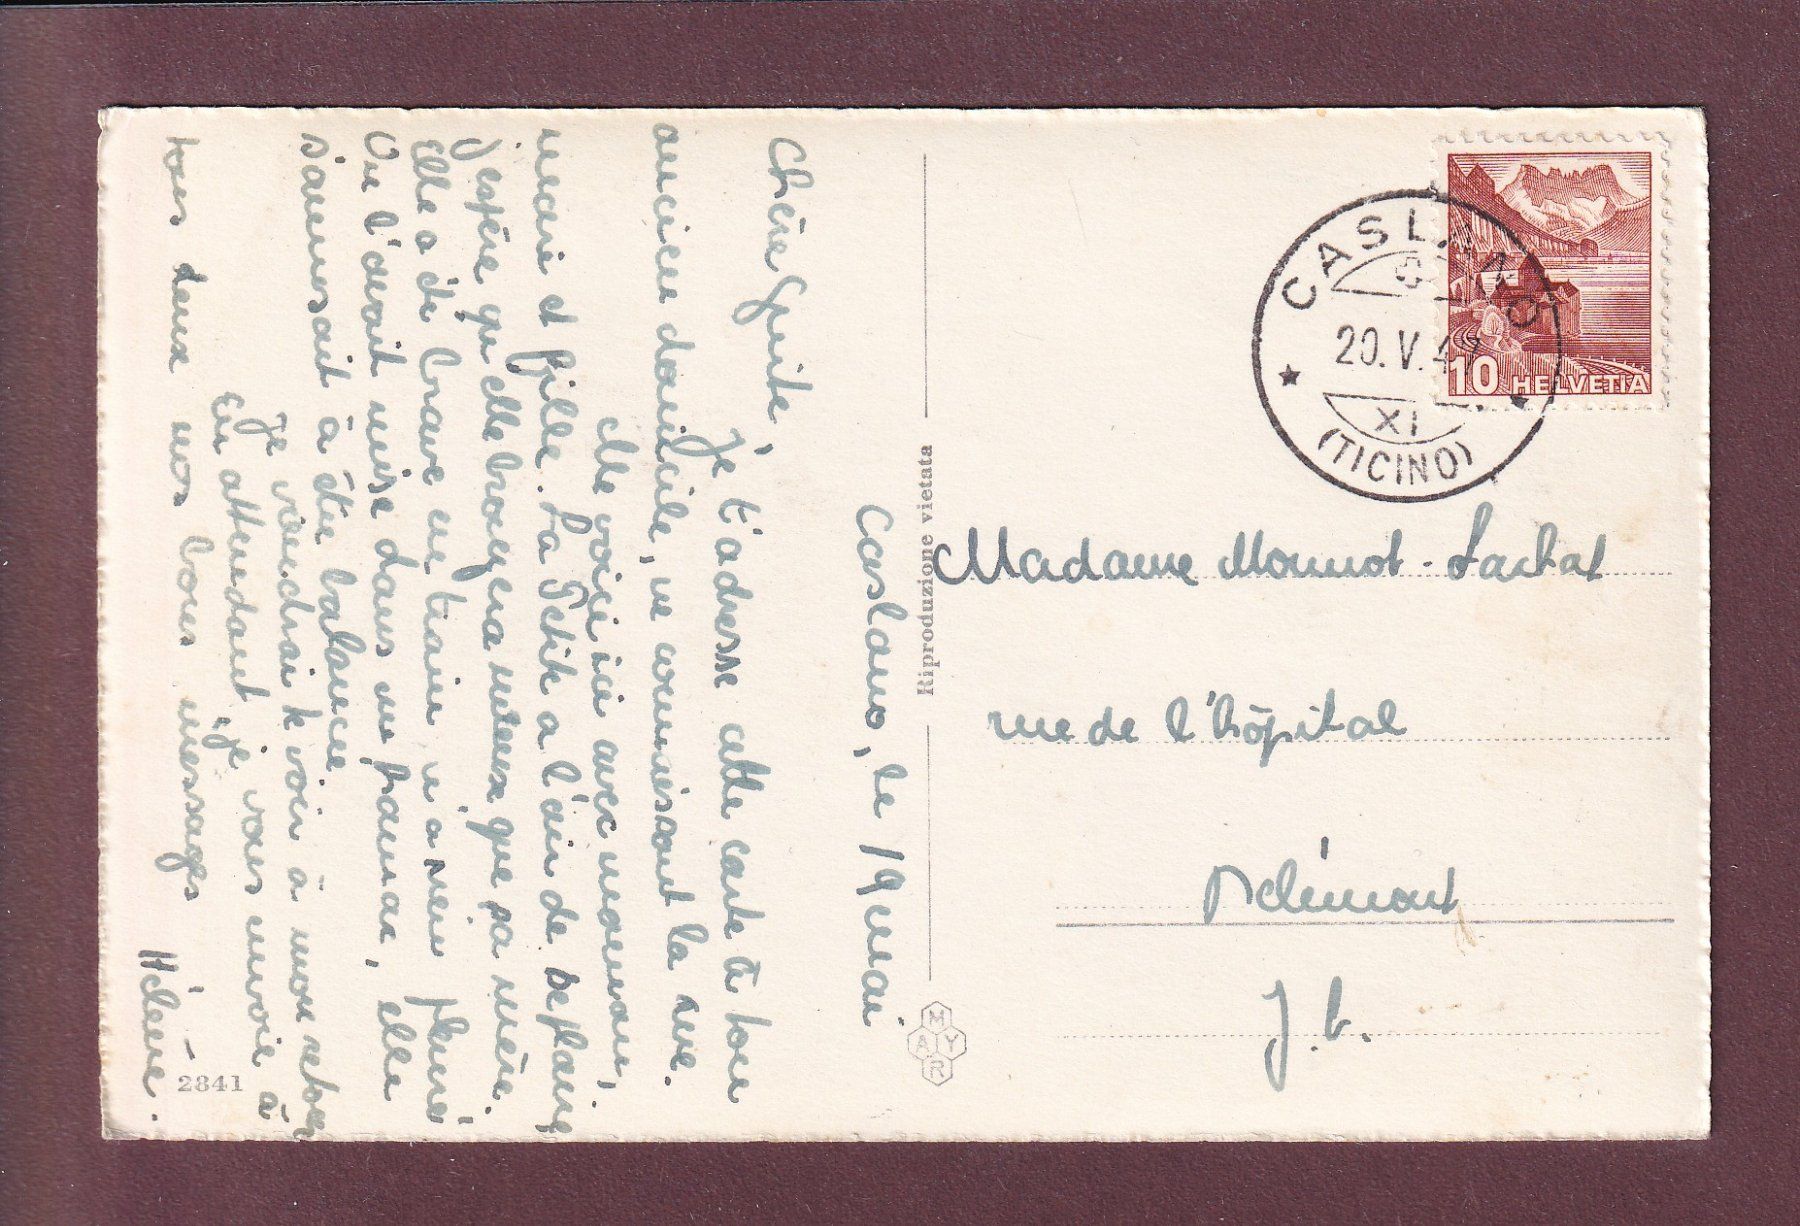 Caslano, le 19 mai
Chère Guite,
Je t'adresse cette carte à ton
ancien domicile, ne connaissant la rue.
Me voici ici avec maman,
mari et fille. La Petite a l'air de se plaire
J'espère qu'elle bronzera mieux que sa mère.
Elle a été brave en train, n'a rien pleuré
On l'avait mise dans un hamac, elle
s'amusait à être balancée
Je viendrai te voir à mon retour
En attendant je vous envoie à
tous deux nos bons messages
Hélène.
2841
Riproduzione vietata
MAYR
CASLANO
20. V. 4
XI
(TICINO)
10 HELVETIA
Madame Monnot-Lachat
rue de l'hôpital
Delémont
J. b.